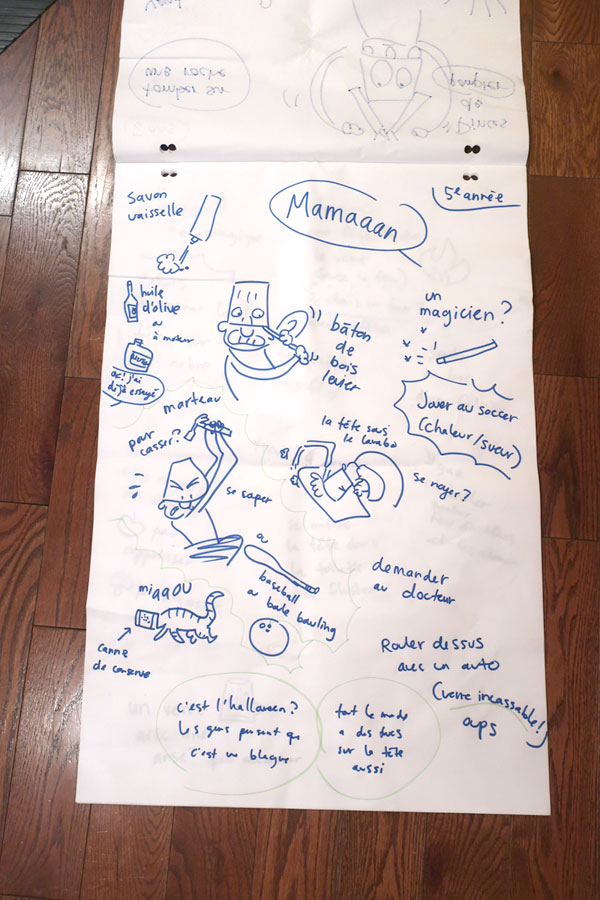 Savon
vaisselle
Mamaaan
5e année
huile
d'olive
à
à moteur
oc! j'ai
déjà essayé
bâton
de
bois
levier
un
magicien?
Jouer au soccer
(chaleur/sueur)
marteau
pour
casser?
la tête sous
le lavabo
se noyer?
se saper
miaaou
canne
de conserve
a
baseball
ou boule bowling
demander
au docteur
Rouler dessus
avec un auto
(verre incassable!)
oups
c'est l'halloween?
les gens pensent que
c'est un blague
tout le monde
a des trucs
sur la tête
aussi